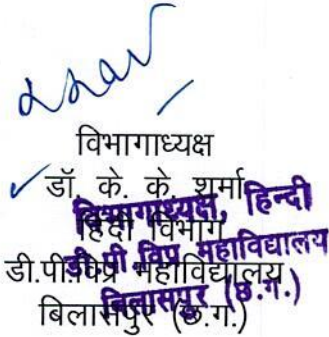 विभागाध्यक्ष
डॉ. के. के. शर्मा
हिन्दी विभाग
डी.पी.विप्र महाविद्यालय
बिलासपुर (छ.ग.)
विभागाध्यक्ष, हिन्दी
डी.पी.विप्र महाविद्यालय
बिलासपुर (छ.ग.)